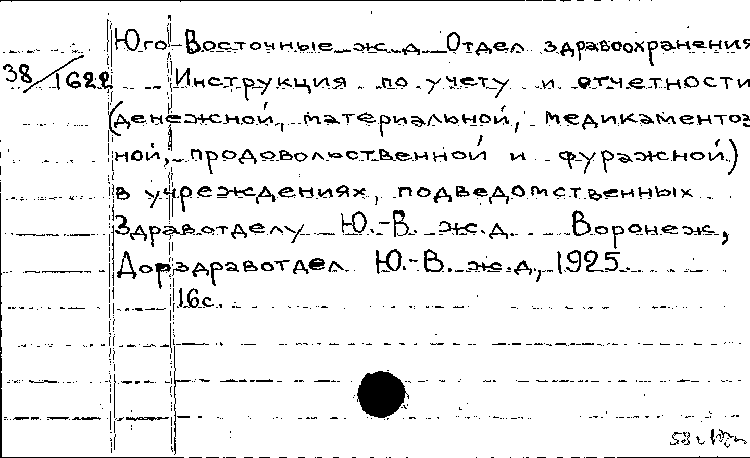 Юго-Восточные ж.д. Отдел здравоохранения
38/1622 Инструкция по учету и отчетности
(денежной, материальной, медикаментоз
ной, продовольственной и фуражной)
в учреждениях, подведомственных
Здравотделу Ю.-В. ж.д. Воронеж,
Дорздравотдел Ю.-В. ж.д., 1925.
16с.